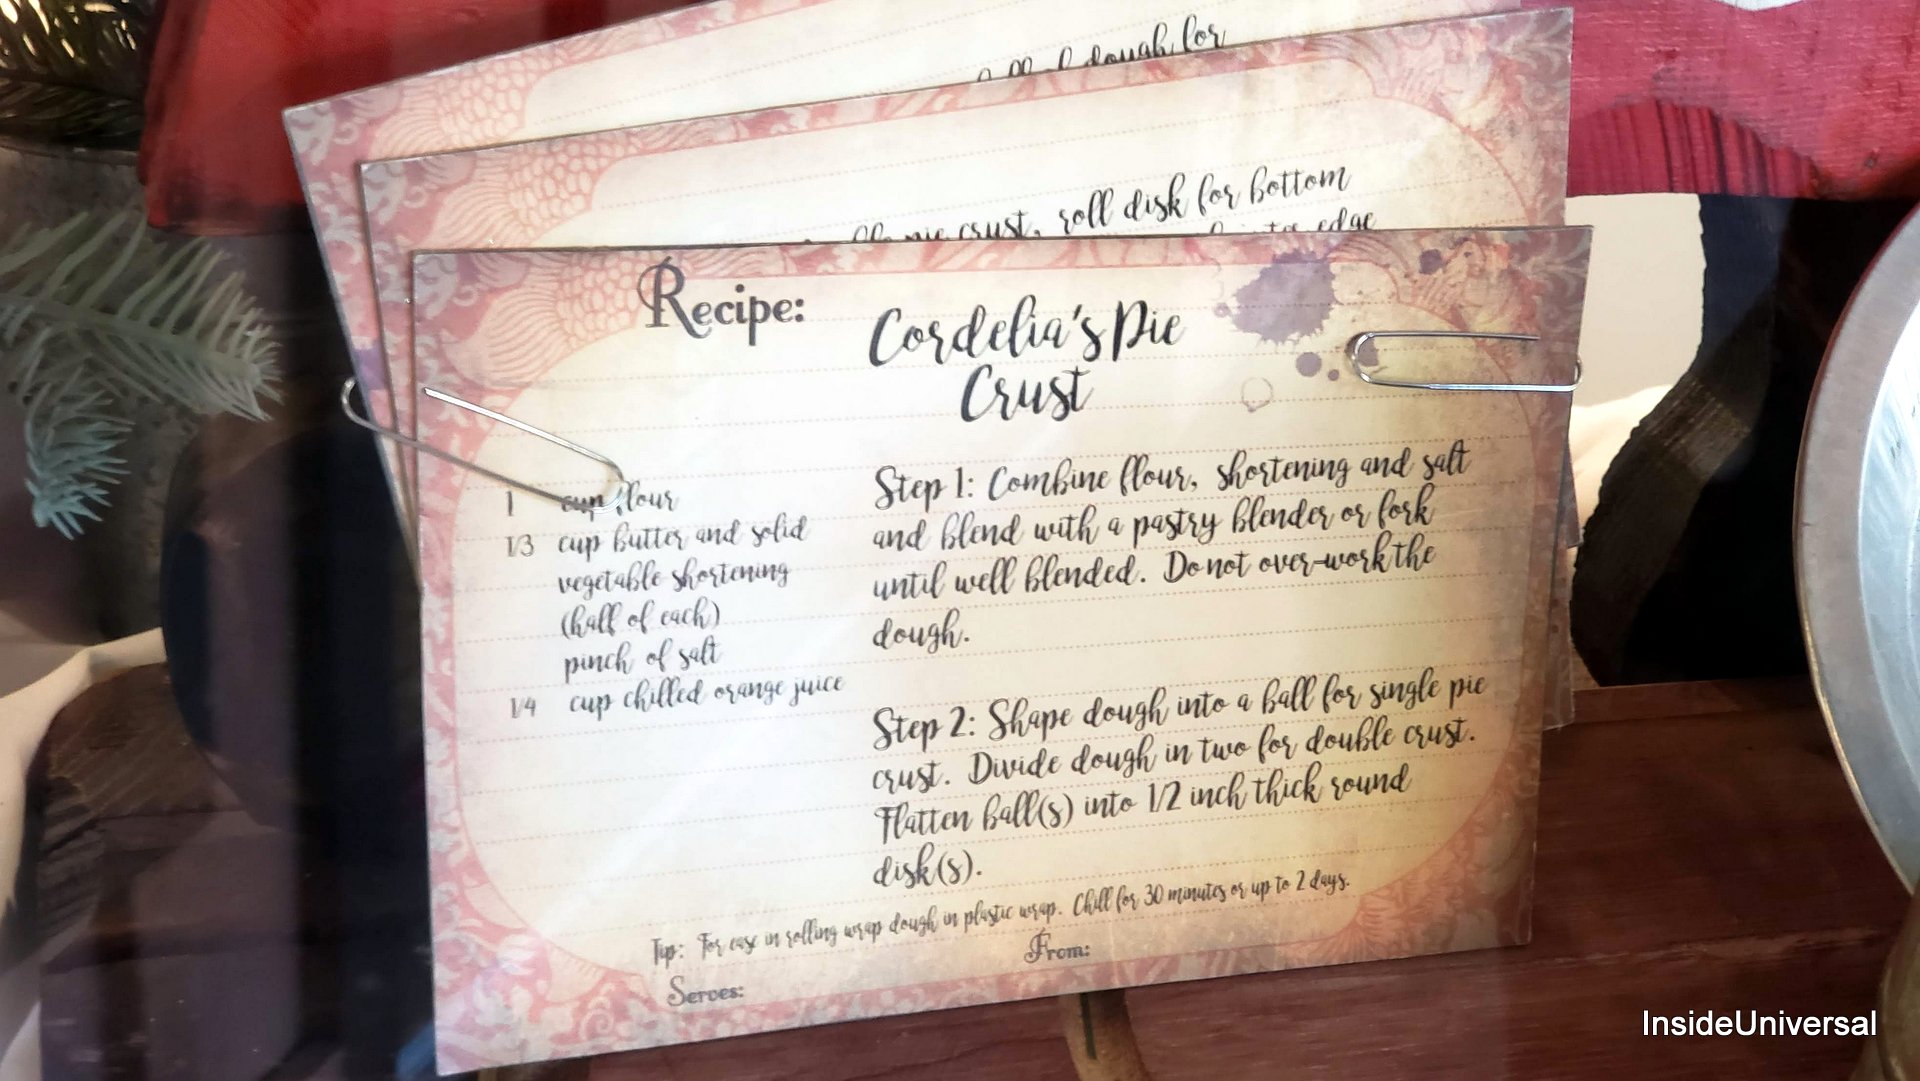 dough for
crust, roll disk for bottom
edge
Recipe:
Cordelia's Pie
Crust
1 cup flour
1/3 cup butter and solid
vegetable shortening
(half of each)
pinch of salt
1/4 cup chilled orange juice
Step 1: Combine flour, shortening and salt
and blend with a pastry blender or fork
until well blended. Do not over-work the
dough.
Step 2: Shape dough into a ball for single pie
crust. Divide dough in two for double crust.
Flatten ball(s) into 1/2 inch thick round
disk(s).
Tip: For ease in rolling wrap dough in plastic wrap. Chill for 30 minutes or up to 2 days.
From:
Serves:
InsideUniversal